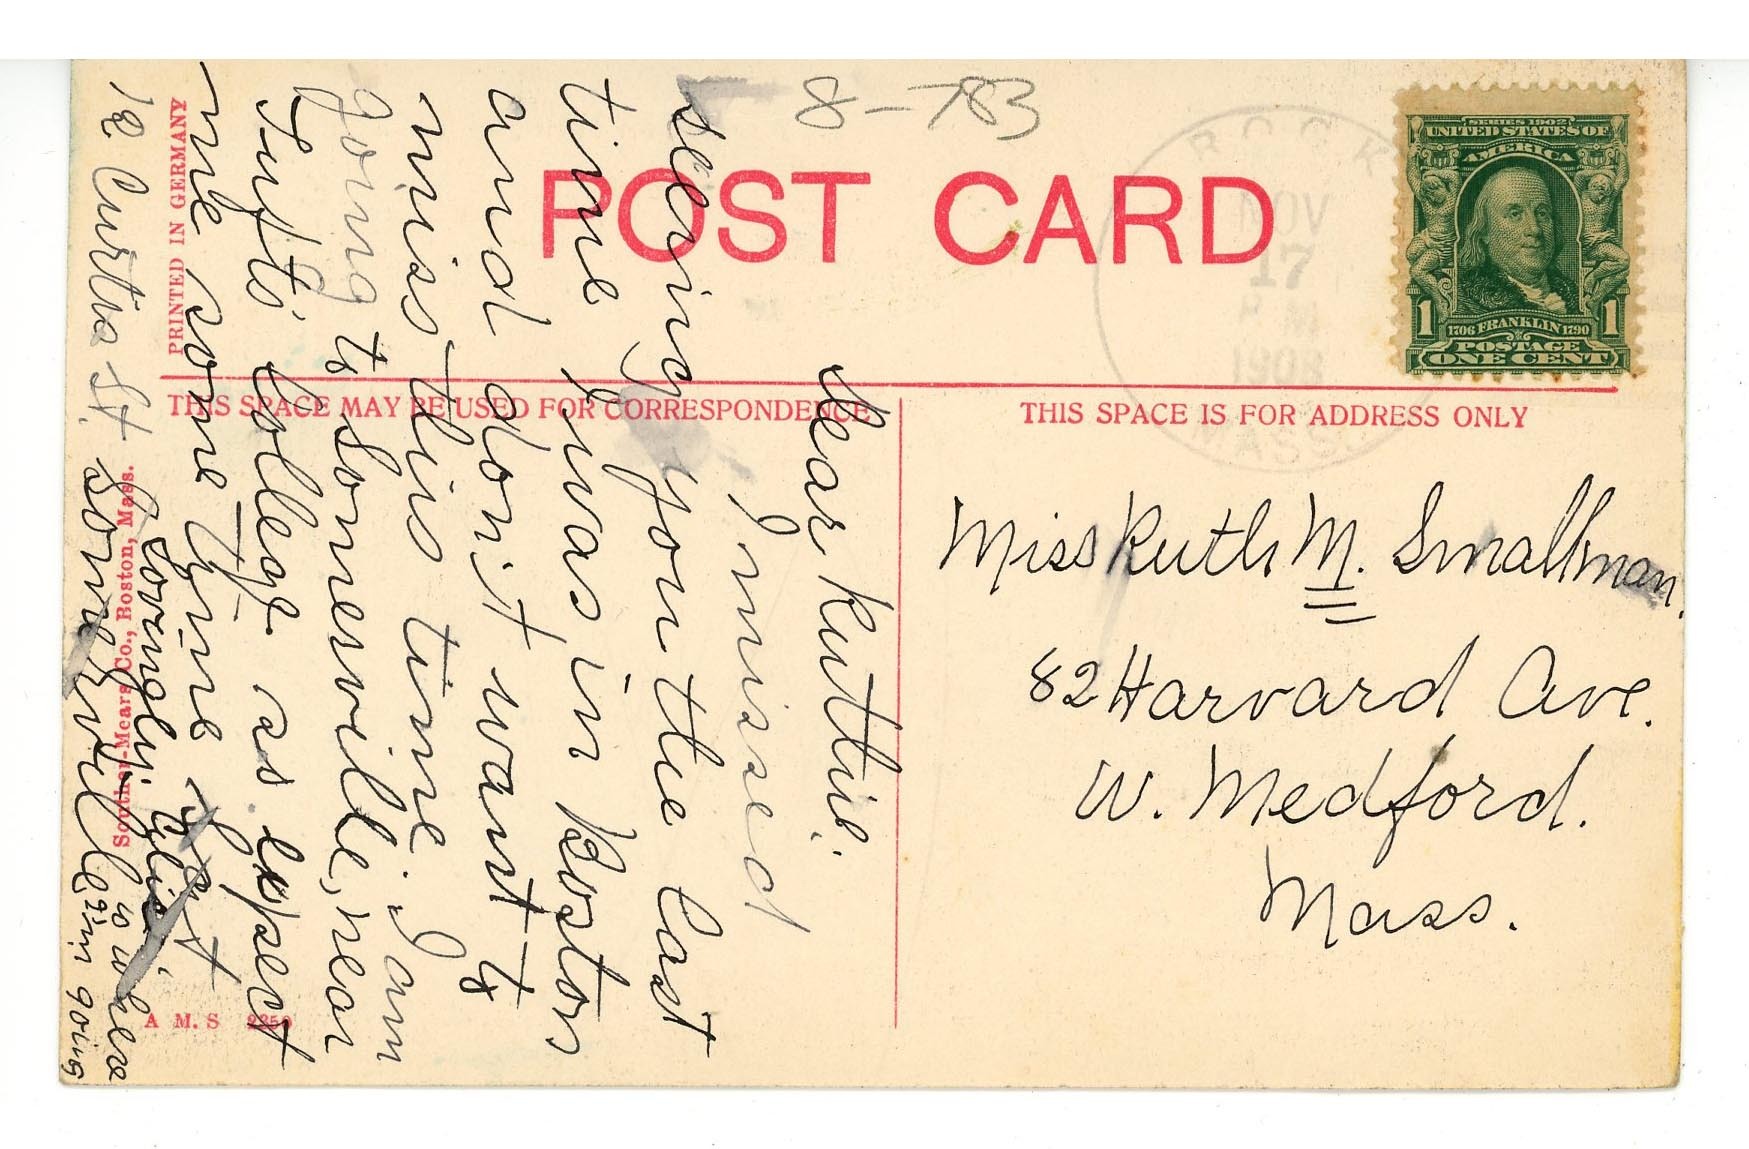 8-783
POST CARD
ROCK
NOV
17
P M
1908
MASS.
SERIES 1902
UNITED STATES OF
AMERICA
1 1706 FRANKLIN 1790 1
POSTAGE
ONE CENT
PRINTED IN GERMANY
THIS SPACE MAY BE USED FOR CORRESPONDENCE
THIS SPACE IS FOR ADDRESS ONLY
Miss Ruth M. Smallman.
82 Harvard Ave.
W. Medford.
Mass.
Dear Ruthie.
I missed
seeing you the last
time I was in Boston
and don't want to
miss this time. I am
going to Somesville, near
Tufts' College. as. expect
me some time
Lovingly
12 Curtis St. Somerville
is where
I'm going
Souther-Mears Co., Boston, Mass.
A M. S